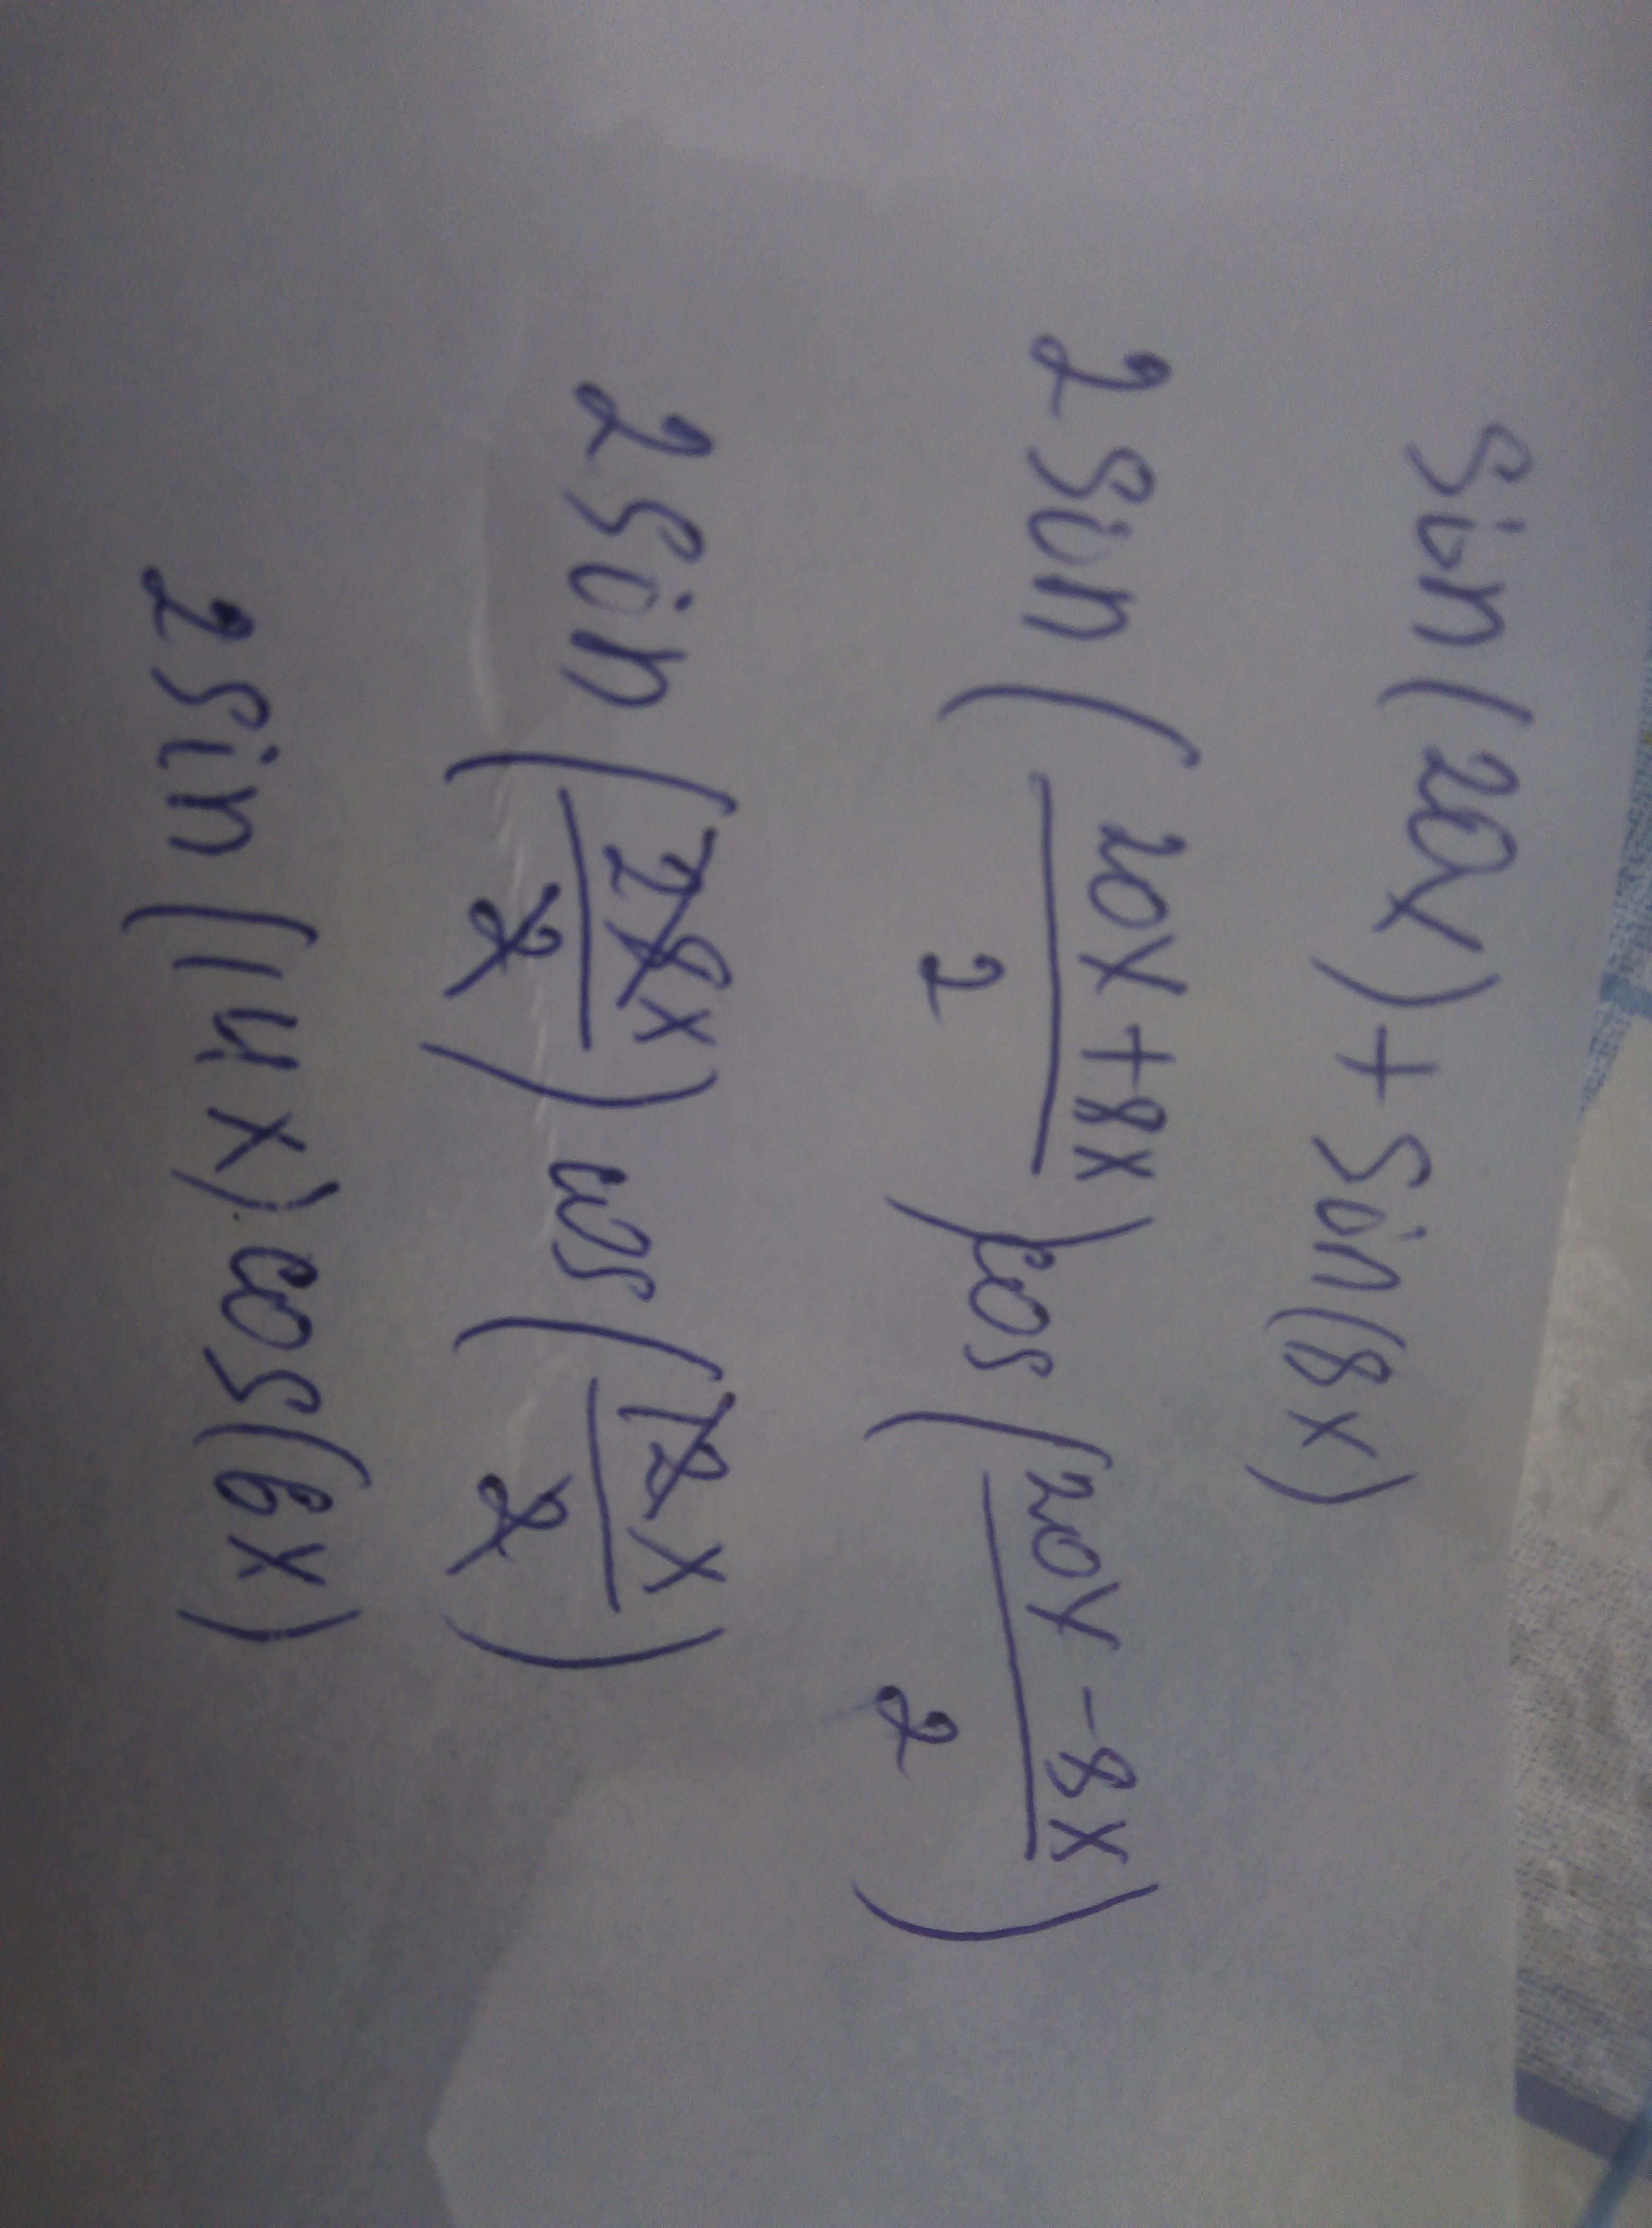 sin(20x)+sin(8x)
2sin(20x+8x/2)cos(20x-8x/2)
2sin(28x/2)cos(12x/2)
2sin(14x)cos(6x)